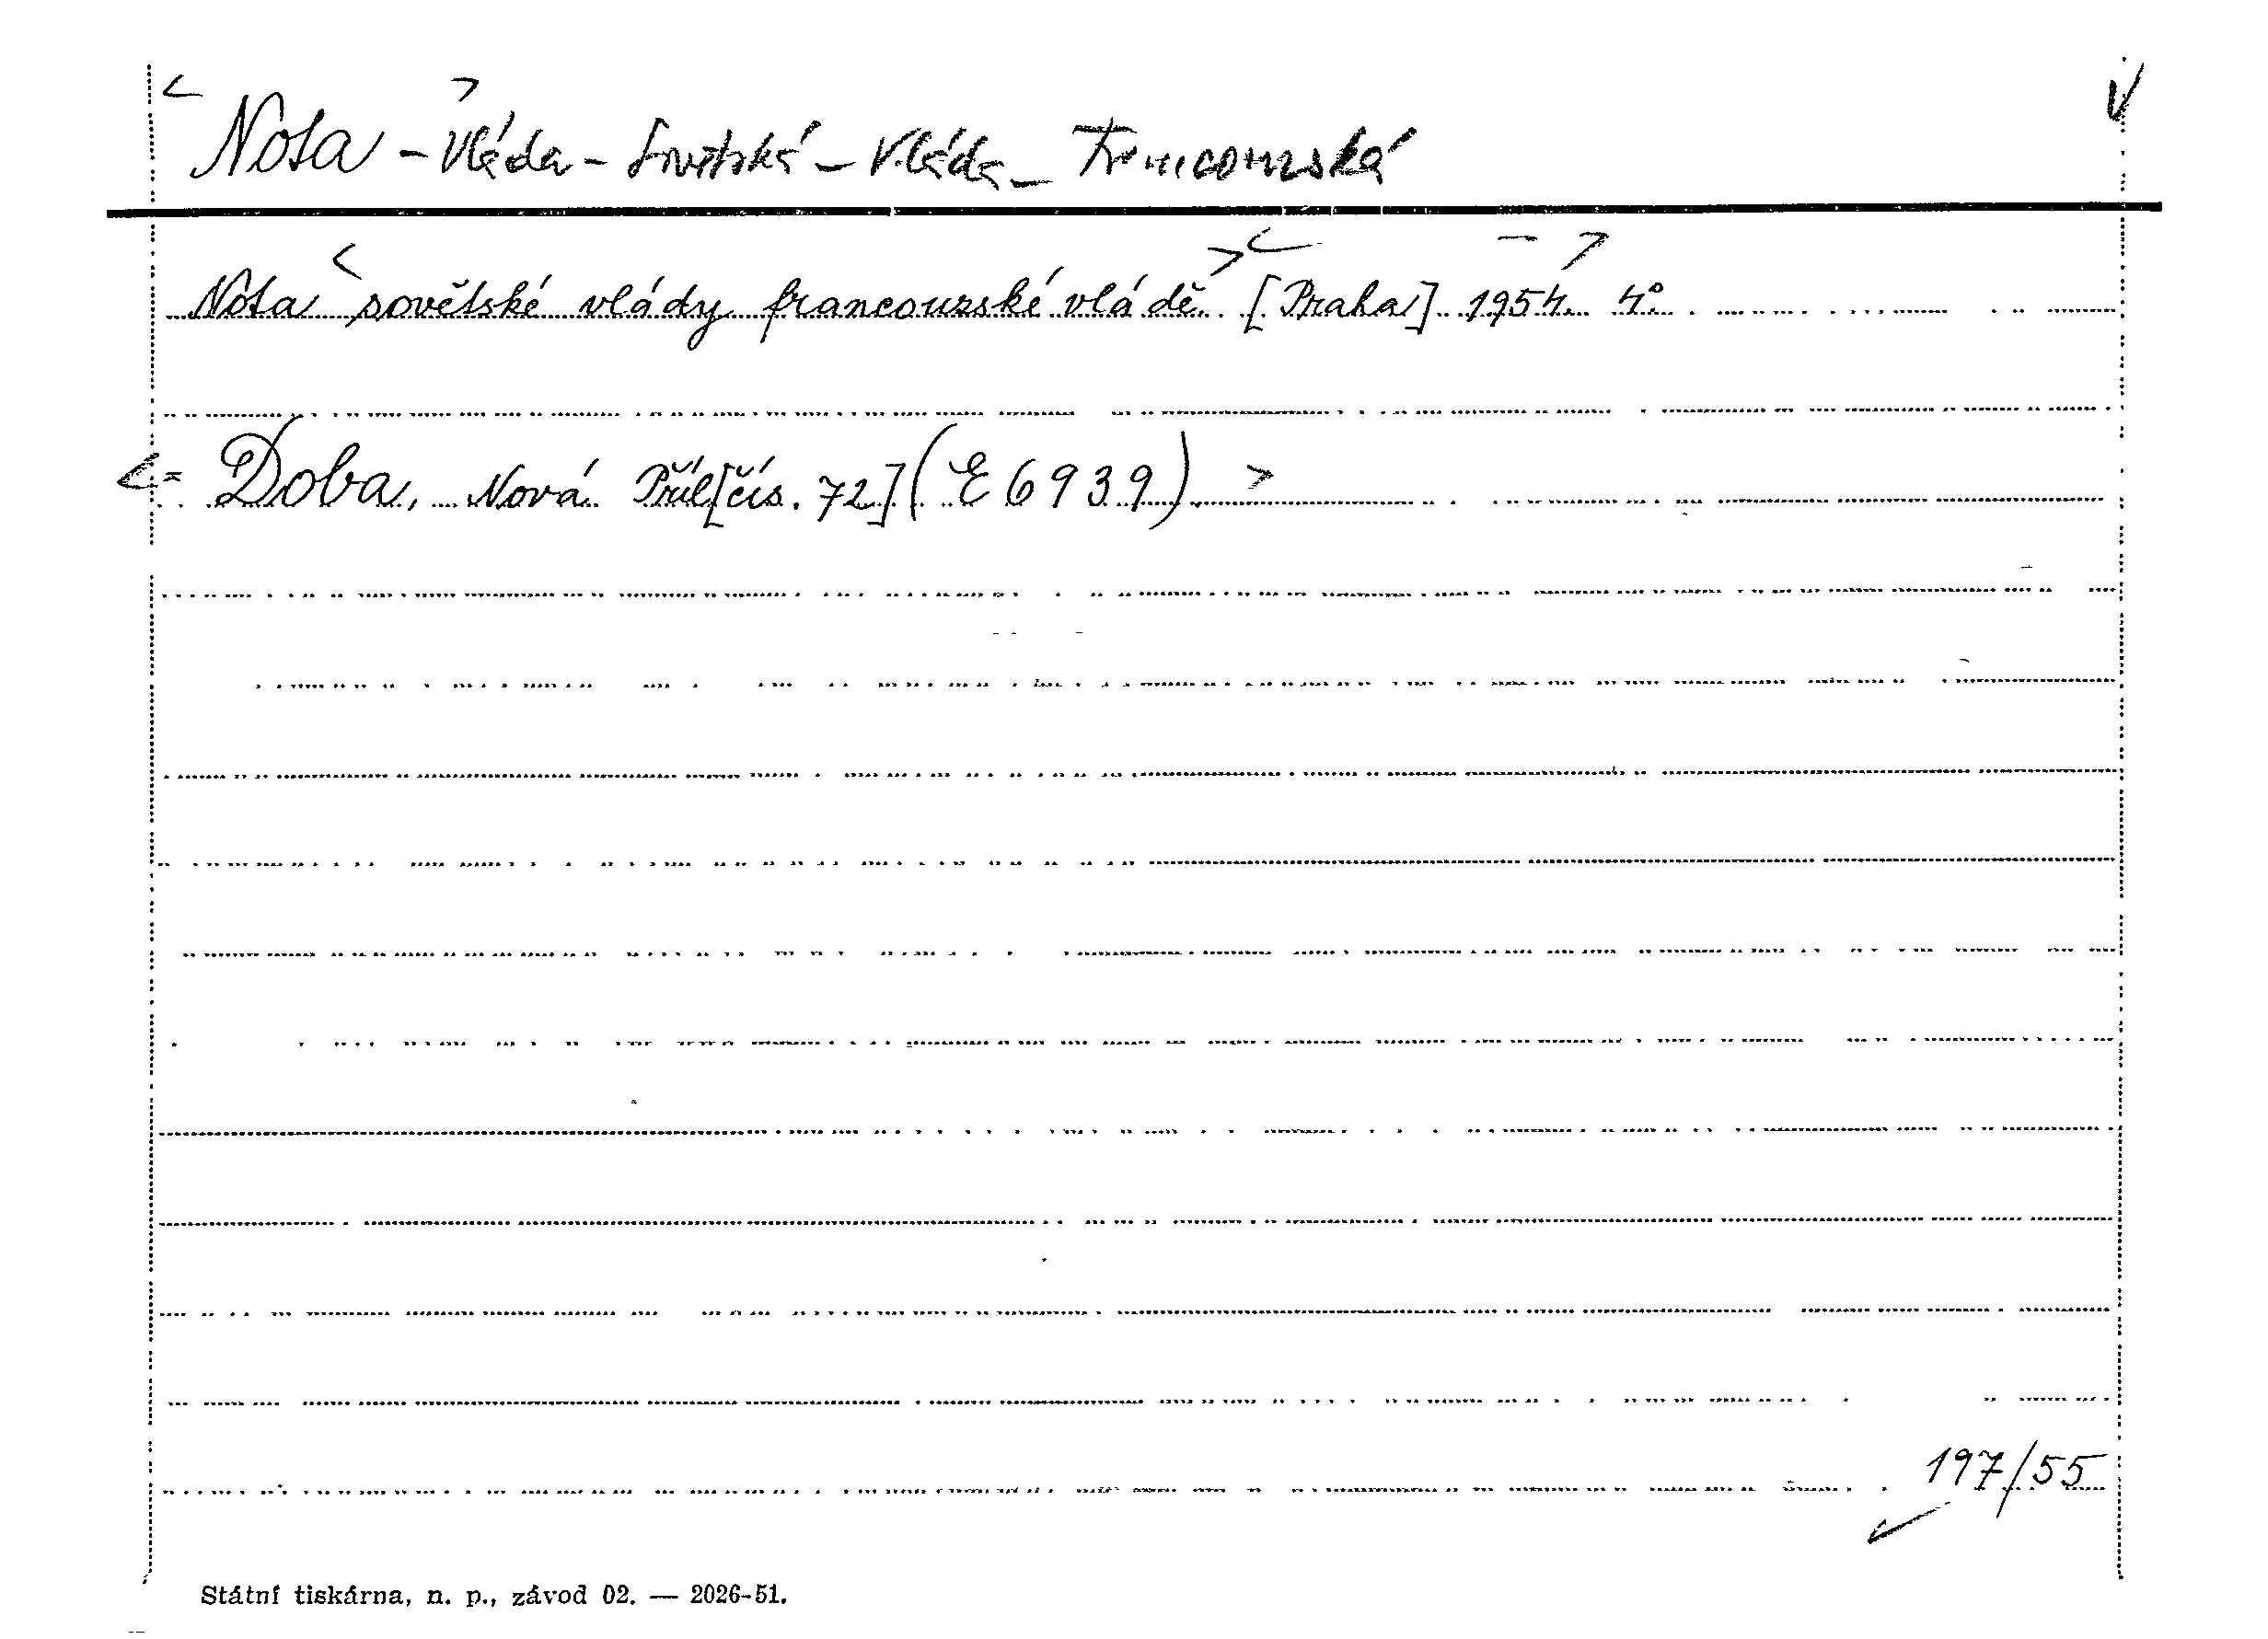 Nota - Vláda - Sovětská - Vláda - Francouzská
Nota sovětské vlády francouzské vládě. [Praha] 1954. 4°.
= Doba, Nová Příl[čís. 72] (E 6939)
197/55
Státní tiskárna, n. p., závod 02. — 2026-51.